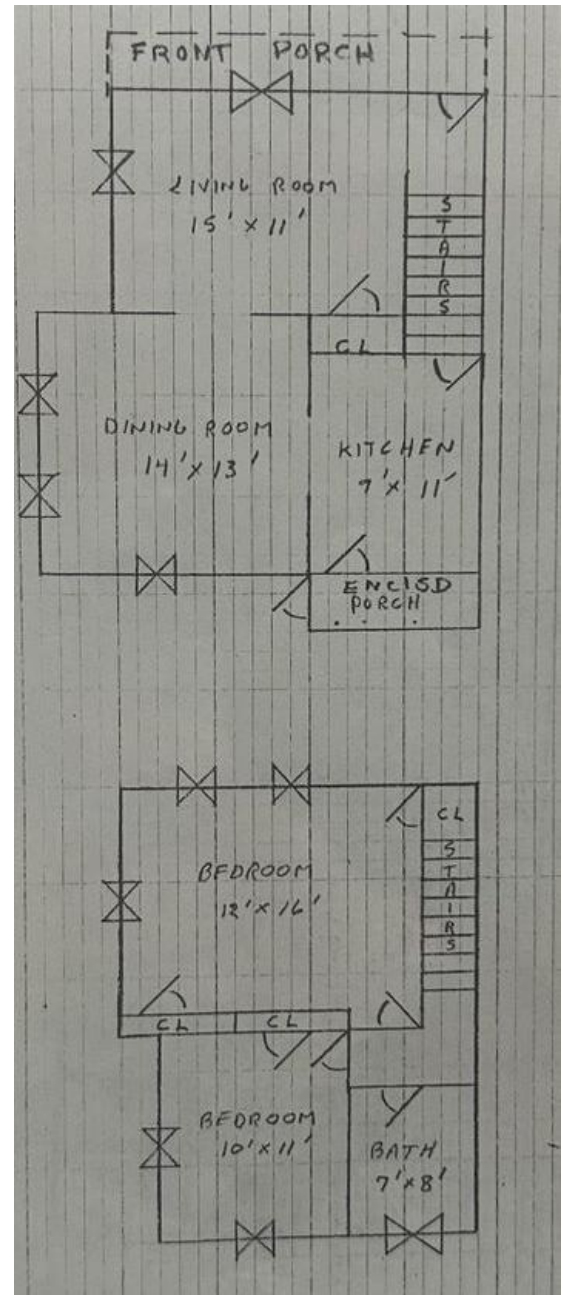 FRONT PORCH
LIVING ROOM
15' X 11'
STAIRS
CL
DINING ROOM
14' X 13'
KITCHEN
9' X 11'
ENCLSD
PORCH
CL
STAIRS
BEDROOM
12' X 16'
CL
CL
BEDROOM
10' X 11'
BATH
7' X 8'